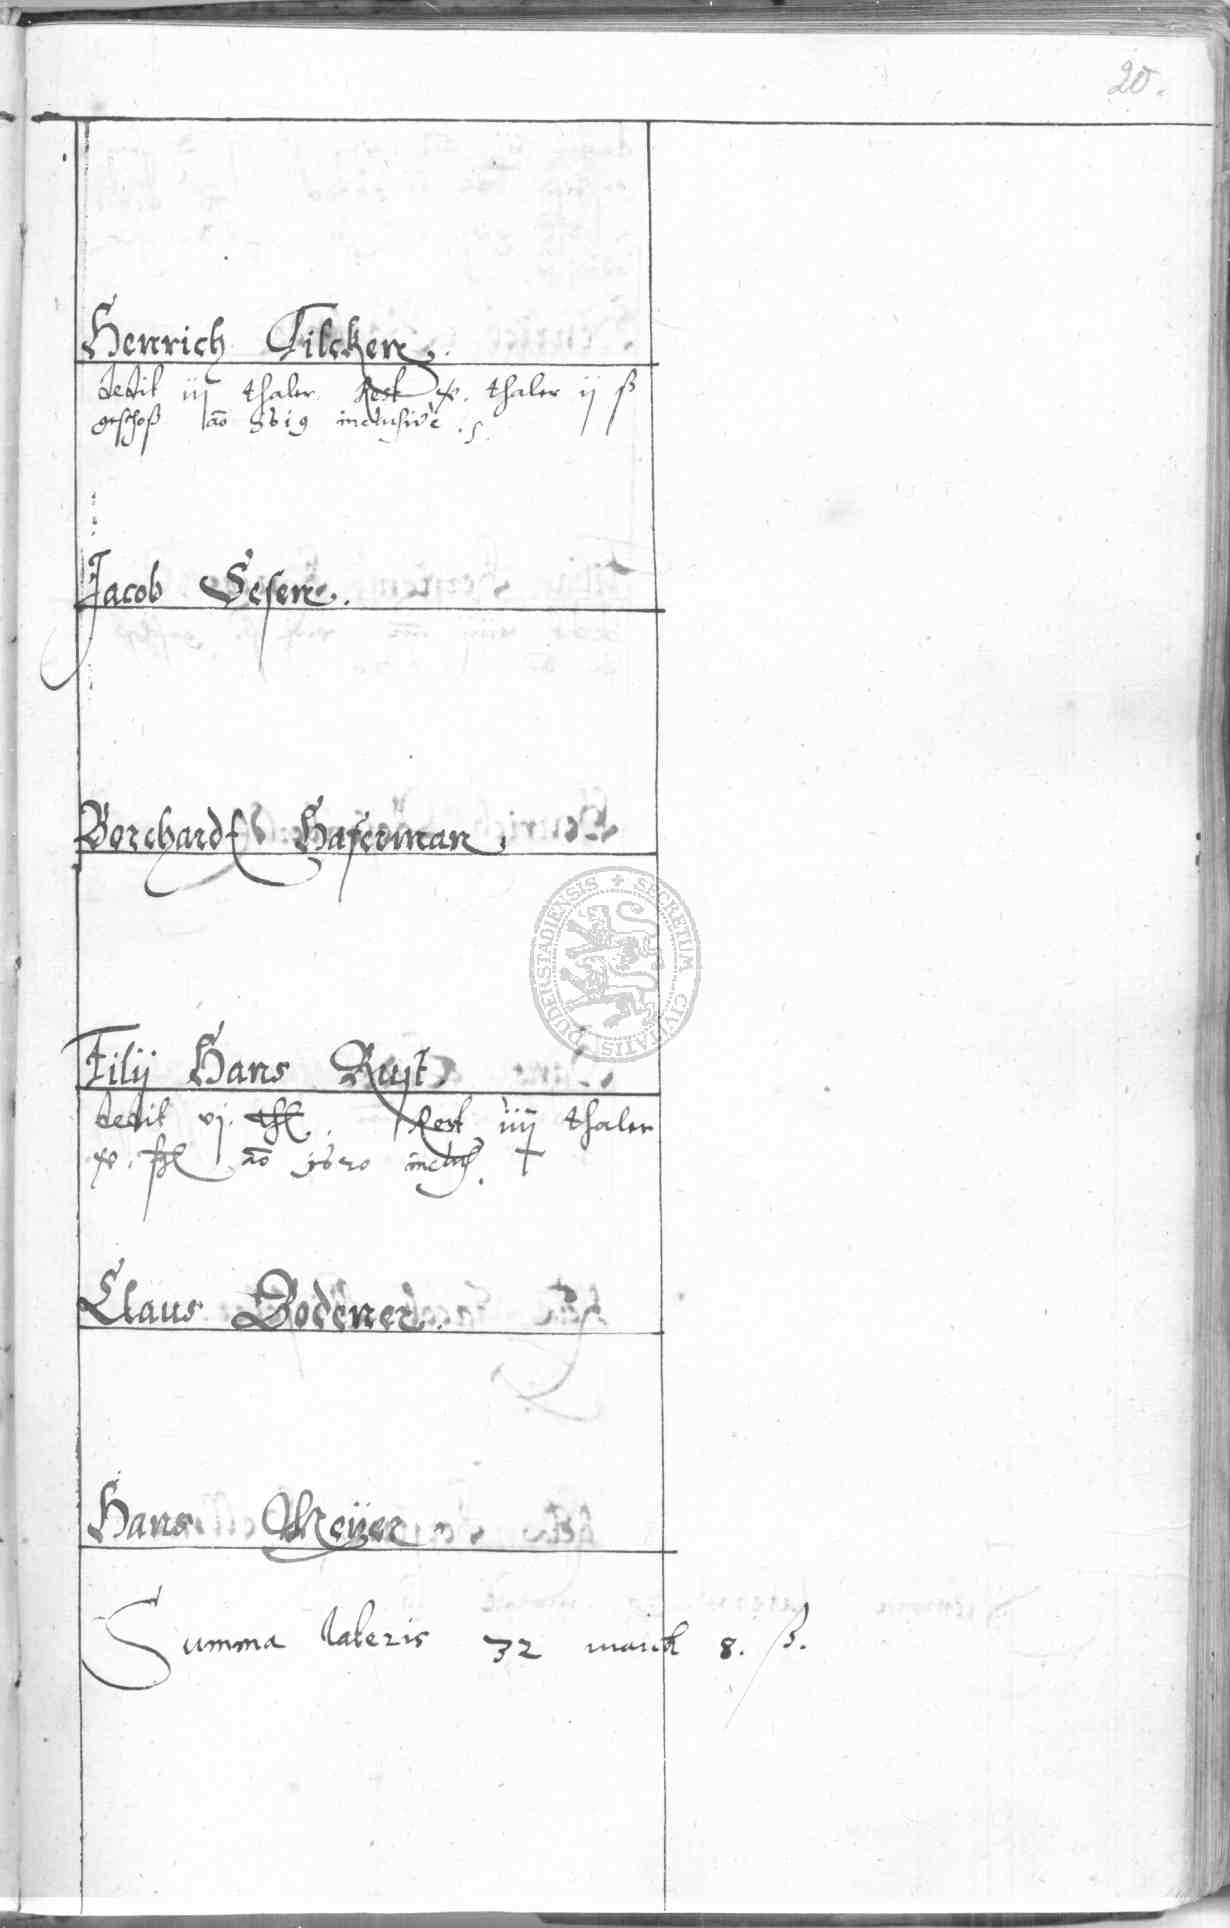 20.
Henrich Tilcken.
dedit iij thaler Rest xv. thaler ij ß
geschoß aō 1619 inclusive.
Jacob Gesen.
Borchardt Haferman.
Filij Hans Rust.
dedit vj. Rest iiij thaler
xv. ßl aō 1620 inclus.
Claus Bodener.
Hans Meÿer
Summa lateris 32 marck 8. ß.
SECRETUM CIVITATIS DUDERSTADIENSIS